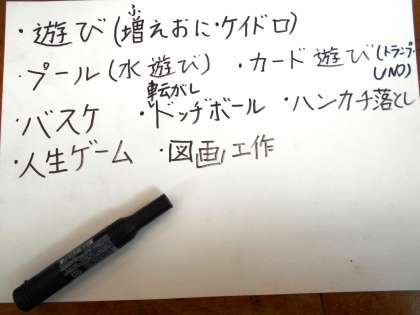 ・遊び(増えおに・ケイドロ)
ふ
・プール(水遊び) ・カード遊び(トランプ・UNO)
転がし
・バスケ ・ドッヂボール ・ハンカチ落とし
・人生ゲーム ・図画工作